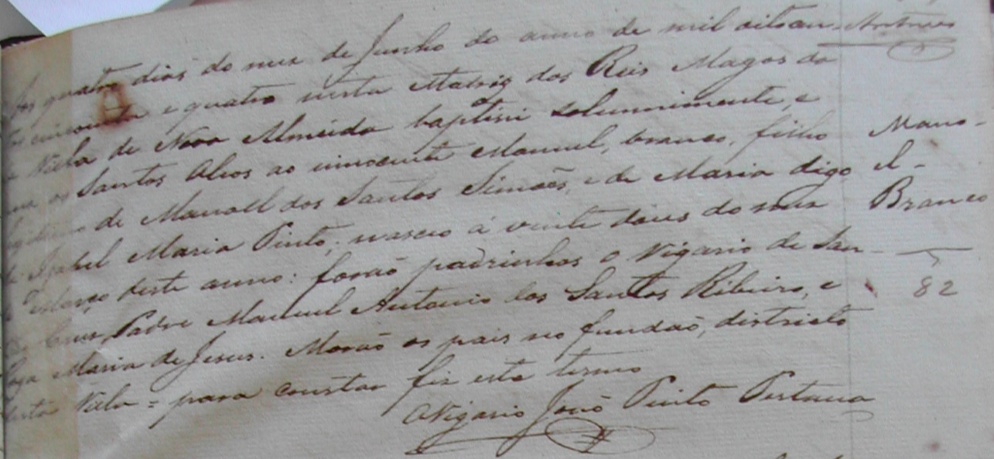 quatro dias do mes de Junho do anno de mil oitocen-
e quatro nesta Matriz dos Reis Magos da
Villa de Nova Almeida baptisei solemnimente, e
os Santos Oleos ao innocente Manuel, branco, filho
de Manoel dos Santos Simões, e de Maria digo
Izabel Maria Pinto; nasceo a vinte dous do mes
deste anno: forão padrinhos o Vigario de San-
Padre Manuel Antonio dos Santos Ribeiro, e
Maria de Jesus. Morão os pais no fundão, districto
desta Villa = para constar fiz este termo
O Vigario João Pinto Pestana
Mano-
el-
Branco
82